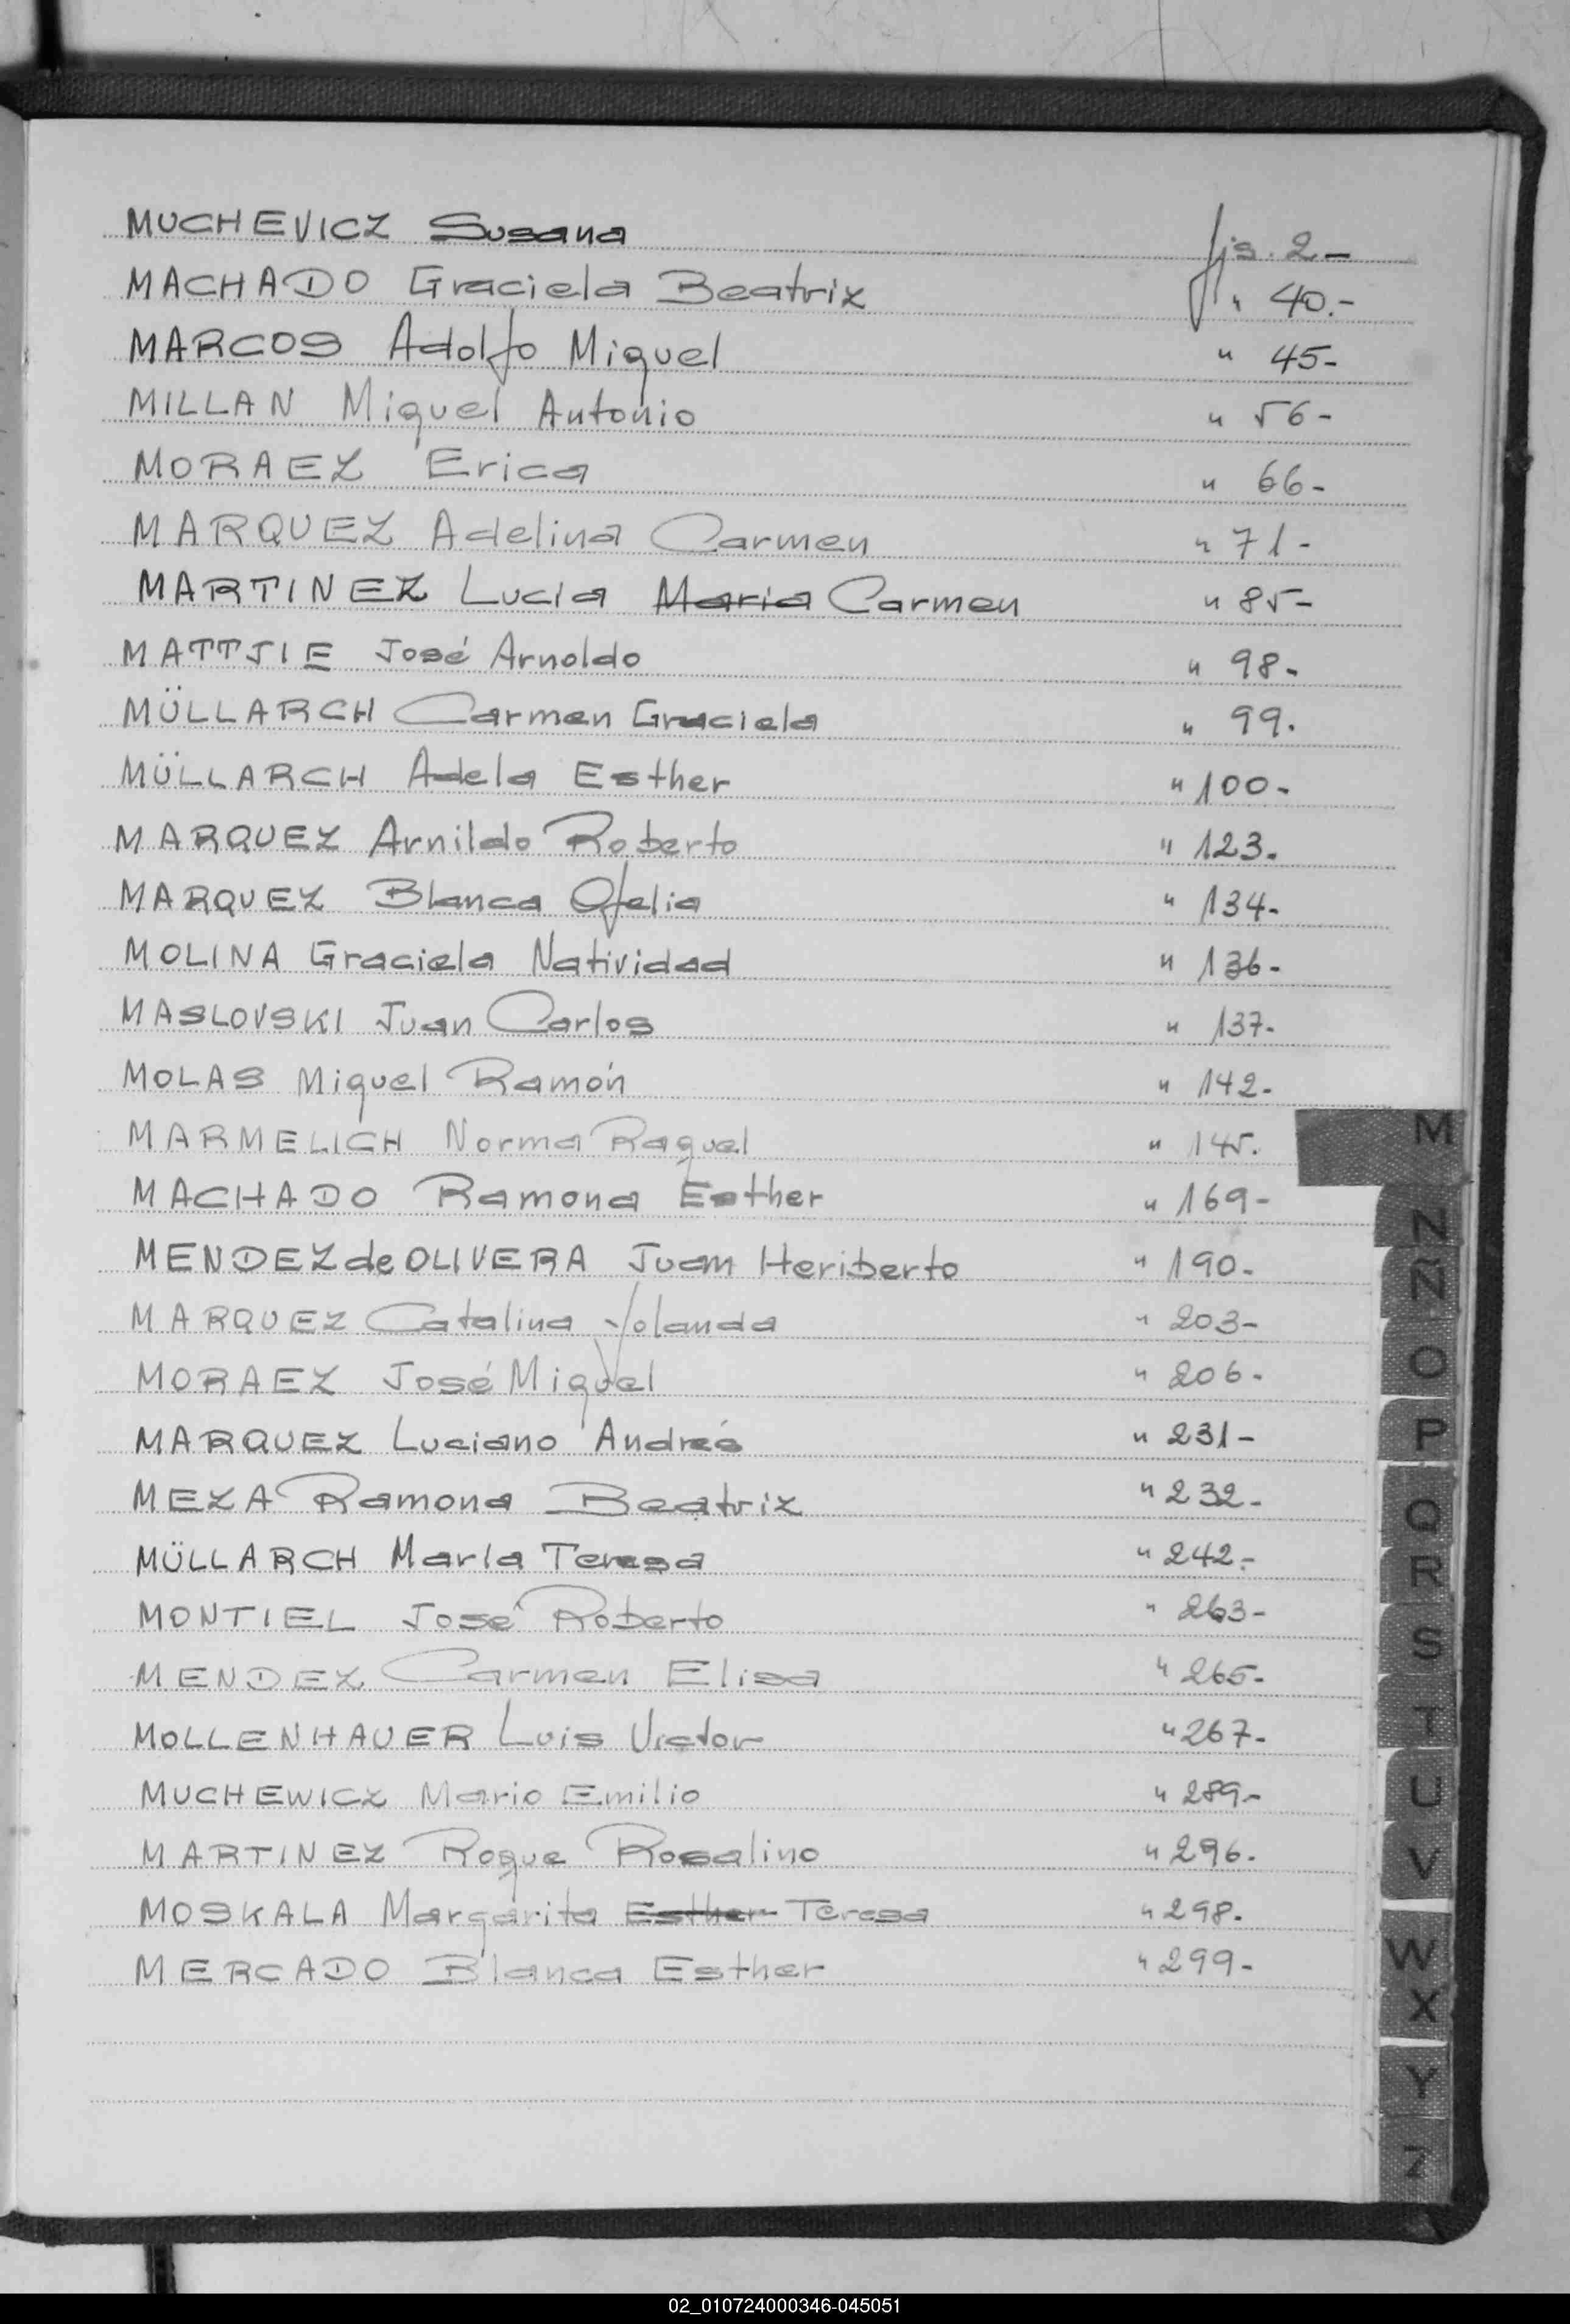 MUCHEVICZ Susana fjs. 2-
MACHADO Graciela Beatriz " 40.-
MARCOS Adolfo Miguel " 45-
MILLAN Miguel Antonio " 56-
MORAEZ Erica " 66-
MARQUEZ Adelina Carmen " 71-
MARTINEZ Lucia Maria Carmen " 85-
MATTJIE José Arnoldo " 98-
MÜLLARCH Carmen Graciela " 99.
MÜLLARCH Adela Esther " 100-
MARQUEZ Arnildo Roberto " 123.
MARQUEZ Blanca Ofelia " 134-
MOLINA Graciela Natividad " 136-
MASLOVSKI Juan Carlos " 137-
MOLAS Miguel Ramón " 142-
MARMELICH Norma Raquel " 145.
MACHADO Ramona Esther " 169-
MENDEZ de OLIVERA Juan Heriberto " 190-
MARQUEZ Catalina Yolanda " 203-
MORAEZ José Miguel " 206-
MARQUEZ Luciano Andrés " 231-
MEZA Ramona Beatriz " 232-
MÜLLARCH María Teresa " 242.-
MONTIEL José Roberto " 263-
MENDEZ Carmen Elisa " 265-
MOLLENHAUER Luis Victor " 267-
MUCHEWICZ Mario Emilio " 289-
MARTINEZ Roque Rosalino " 296.
MOSKALA Margarita Esther Teresa " 298.
MERCADO Blanca Esther " 299-
M
N
Ñ
O
P
Q
R
S
T
U
V
W
X
Y
Z
02_010724000346-045051